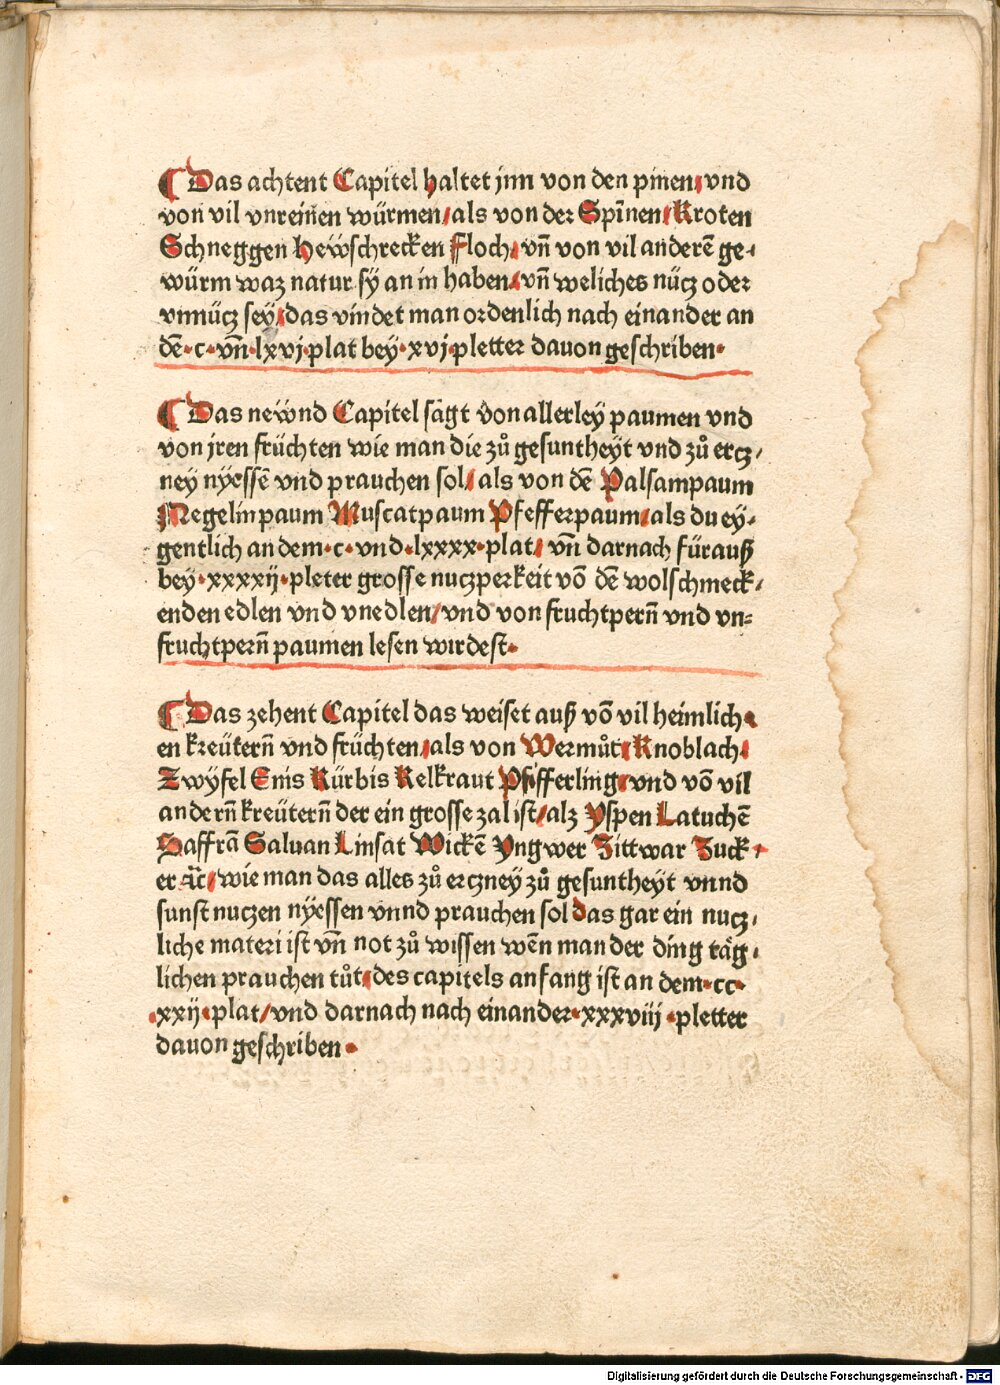 ¶ Das achtent Capitel haltet jnn von den pinen/ vnd
von vil vnreinen würmen/ als von der Spĩnen/ Kroten
Schneggen Hewschrecken Floch/ vñ von vil anderẽ ge⸗
würm waz natur sÿ an in haben/ vñ weliches nücz oder
vnnücz seÿ/ das vindet man ordenlich nach einander an
dẽ · c · vñ · lxvj · plat beÿ · xvj · pletter dauon geschriben ·
¶ Das newnd Capitel sagt von allerleÿ paumen vnd
von jren früchten wie man die zů gesuntheÿt vnd zů ercz⸗
neÿ nÿessẽ vnd prauchen sol/ als von dẽ Palsampaum
Negelinpaum Muscatpaum Pfefferpaum/ als du eÿ⸗
gentlich an dem · c · vnd · lxxxx · plat/ vñ darnach fürauß
beÿ · xxxxij · pleter grosse nuczperkeit võ dẽ wolschmeck⸗
enden edlen vnd vnedlen/ vnd von fruchtperñ vnd vn⸗
fruchtperñ paumen lesen wirdest ·
¶ Das zehent Capitel das weiset auß võ vil heimlich⸗
en kreüterñ vnd früchten/ als von Wermůt/ Knoblach/
Zwÿfel Enis Kürbis Kelkraut Pfifferling/ vnd võ vil
anderñ kreüterñ der ein grosse zal ist/ alz Yspen Latuchẽ
Saffrã Saluan Linsat Wickẽ Yngwer Zittwar Zuck⸗
er ꝛc̃/ wie man das alles zů erczneÿ zů gesuntheÿt vnnd
sunst nuczen nÿessen vnnd prauchen sol das gar ein nucz⸗
liche materi ist vñ not zů wissen wẽn man der ding täg⸗
lichen prauchen tůt/ des capitels anfang ist an dem · cc ·
· xxij · plat/ vnd darnach nach einander · xxxviij · pletter
dauon geschriben ·
Digitalisierung gefördert durch die Deutsche Forschungsgemeinschaft - DFG